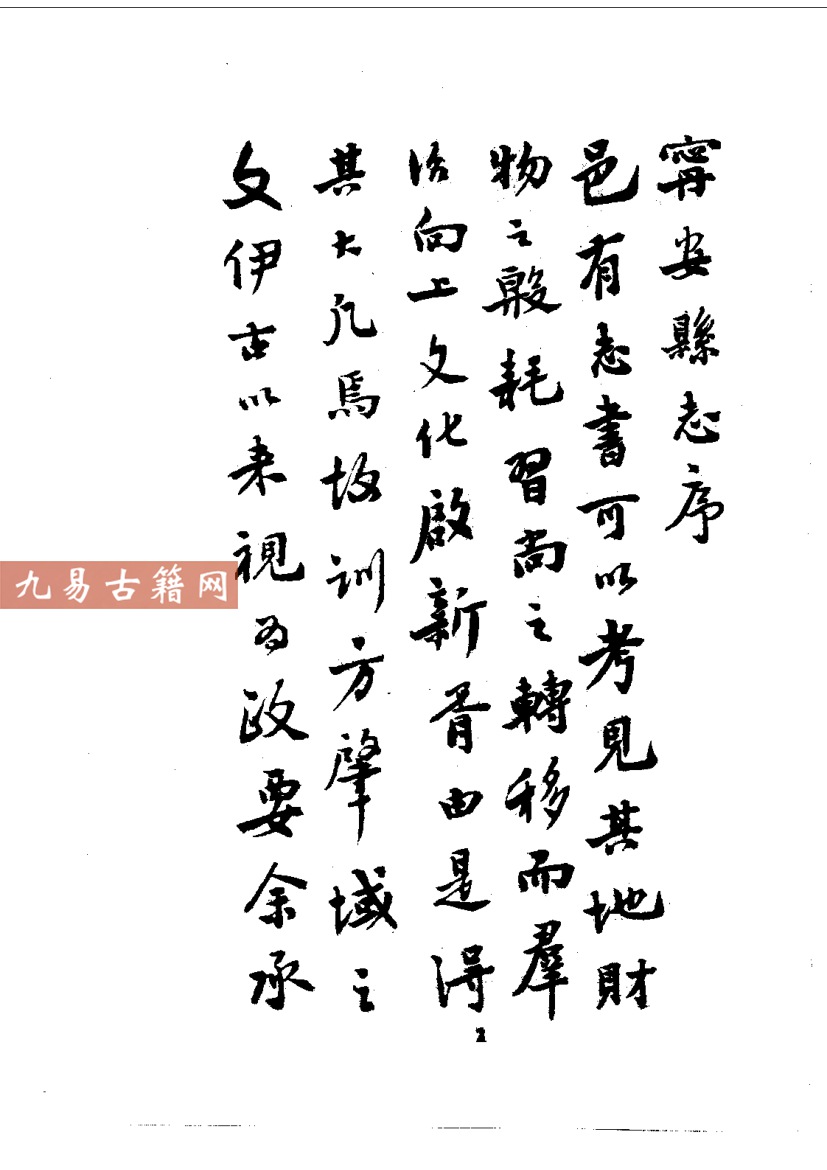 寧安縣志序
邑有志書可以考見其地財
物之殷耗習尚之轉移而羣
治向上文化啟新胥由是得
其大凡焉故訓方肇域之
文伊古以来視為政要余承
九易古籍网
2